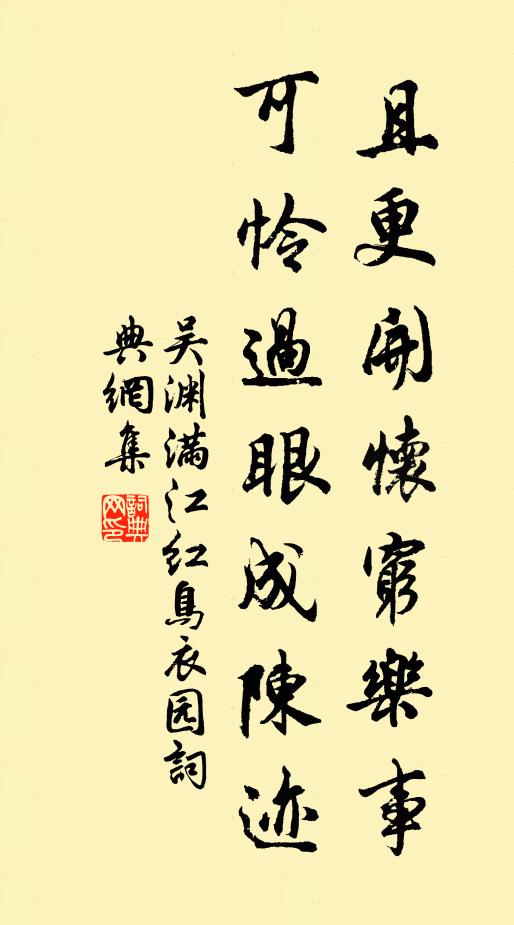 且更開懷窮樂事
可怜過眼成陳迹
吴渊满江红烏衣园詞
典網集
詞典網印